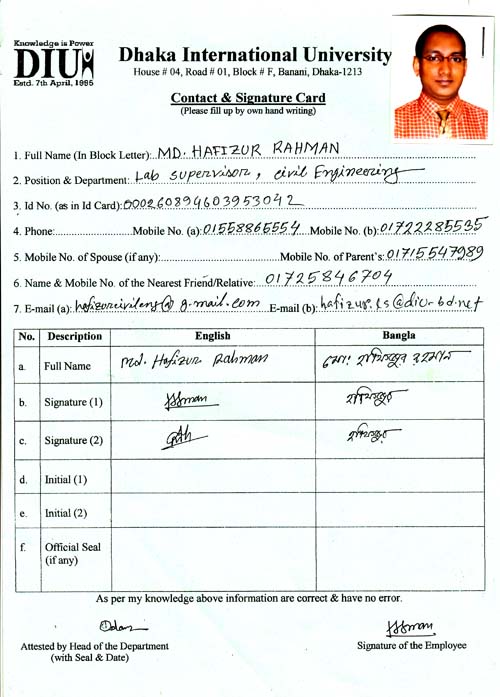 Knowledge is Power
DIU
Estd. 7th April, 1995
Dhaka International University
House # 04, Road # 01, Block # F, Banani, Dhaka-1213
Contact & Signature Card
(Please fill up by own hand writing)
1. Full Name (In Block Letter): MD. HAFIZUR RAHMAN
2. Position & Department: Lab supervisor, civil Engineering
3. Id No. (as in Id Card): 00026089460395 3042
4. Phone: Mobile No. (a): 01558865554 Mobile No. (b): 01722285535
5. Mobile No. of Spouse (if any): Mobile No. of Parent's: 01715547989
6. Name & Mobile No. of the Nearest Friend/Relative: 01725846704
7. E-mail (a): hafizurcivileng@g-mail.com E-mail (b): hafizur.ls@diu-bd.net
No. Description English Bangla
a. Full Name Md. Hafizur Rahman মোঃ হাফিজুর রহমান
b. Signature (1) হাফিজুর
c. Signature (2) হাফিজুর
d. Initial (1)
e. Initial (2)
f. Official Seal
(if any)
As per my knowledge above information are correct & have no error.
Attested by Head of the Department
(with Seal & Date)
Signature of the Employee